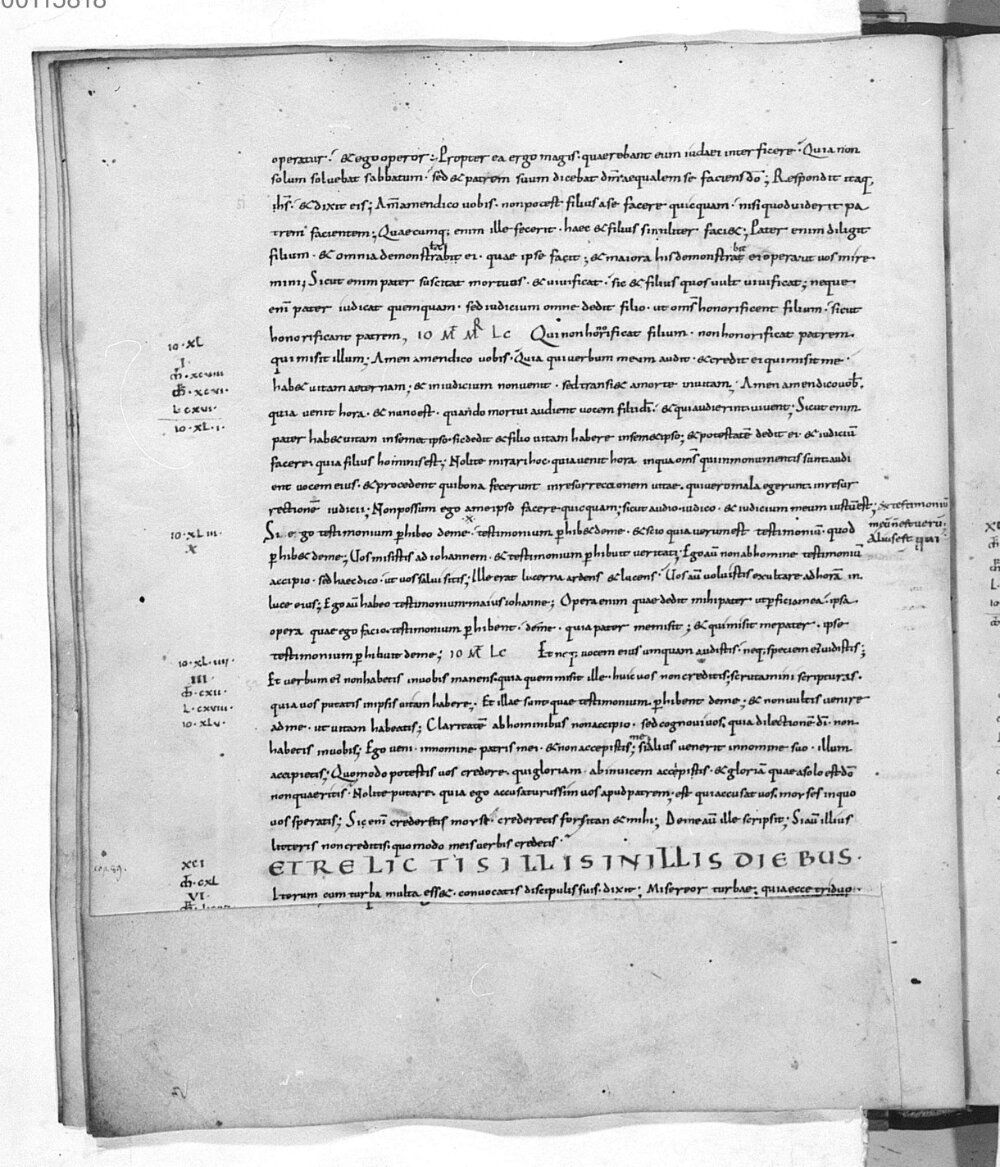 00113818
operatur; & ego operor; Propter ea ergo magis quaerebant eum iudaei interficere. Quia non
solum soluebat sabbatum. sed & patrem suum dicebat dm̄ aequalem se faciens dō; Respondit itaq;
ihs̄. & dixit eis; Am̄ amen dico uobis. non potest filius a se facere quicquam. nisi quod uiderit pa
trem facientem; Quaecumq; enim ille fecerit. haec & filius similiter faci&; Pater enim diligit
filium. & omnia demonstrat ei. quae ipse facit; & maiora his demonstrabit ei opera. ut uos mire
mini; Sicut enim pater suscitat mortuos. & uiuificat. sic & filius quos uult uiuificat; neque
enī pater iudicat quemquam. sed iudicium omne dedit filio. ut om̄s honorificent filium. sicut
honorificant patrem, IO M̄ MR̄ LC Qui non honorificat filium. non honorificat patrem.
IO. XL
qui misit illum; Amen amen dico uobis. Quia qui uerbum meum audit. & credit ei qui misit me
I
M̄. XCVIII
hab& uitam aeternam; & in iudicium non uenit. sed transi& a morte in uitam; Amen amen dico uob̄.
M̄R. XCVI.
L. CXVI.
quia uenit hora. & nunc est. quando mortui audient uocem filii dī. & qui audierint uiuent; Sicut enim
IO. XL.I.
pater hab& uitam in semet ipso. sic dedit & filio uitam habere in semet ipso; & potestatē dedit ei. & iudiciū
facere. quia filius hominis est; Nolite mirari hoc. quia uenit hora in qua om̄s qui in monumentis sunt. audi
ent uocem eius. & procedent qui bona fecerunt in resurreccionem uitae. qui uero mala egerunt. in resur
rectionē iudicii; Non possum ego a me ipso facere quicquam; sicut audio. iudico. & iudicium meum iustū est;
Si ego testimonium perhibeo de me. testimonium perhib& de me. & scio quia uerum est testimoniū. quod
testimoniū
meū n̄ est uerū.
Alius est qui
IO. XL III.
X
perhib& de me; Uos misistis ad iohannem. & testimonium perhibuit ueritati; Ego aū non ab homine testimoniū
accipio. sed haec dico. ut uos salui sitis; Ille erat lucerna ardens & lucens. Uos aū uoluistis exultare ad horā in
luce eius; Ego aū habeo testimonium maius iohanne; Opera enim quae dedit mihi pater. ut perficiam ea. ipsa
opera quae ego facio. testimonium perhibent de me. quia pater me misit; & qui misit me pater. ipse
testimonium perhibuit de me; IO M̄ LC Et neq; uocem eius umquam audistis. neq; speciem ei uidistis;
IO. XL.IIII.
III
Et uerbum ei non habetis in uobis manens. quia quem misit ille. huic uos non creditis; scrutamini scripturas.
M̄. CXII.
L. CXVIII.
quia uos putatis in ipsis uitam habere; Et illae sunt. quae testimonium perhibent de me; & non uultis uenire
IO. XLV.
ad me. ut uitam habeatis; Claritatē ab hominibus non accipio. sed cognoui uos. quia dilectionē dī non
habetis in uobis; Ego ueni in nomine patris mei. & non accepistis me; si alius uenerit in nomine suo. illum
accipietis; Quomodo potestis uos credere. qui gloriam ab inuicem accipistis. & gloriā quae a solo est dō
non quaeritis. Nolite putare. quia ego accusaturus sim uos apud patrem; est qui accusat uos. morses in quo
uos speratis; Si enī crederetis morsi. crederetis forsitan & mihi; De me aū ille scripsit; Si aū illius
litteris non creditis. quomodo meis uerbis credetis
XCI
ET RELICTIS ILLIS IN ILLIS DIEBUS.
M̄. CXL
VI.
Iterum cum turba multa ess&. conuocatis discipulis suis. dixit; Misereor turbae; quia ecce triduo